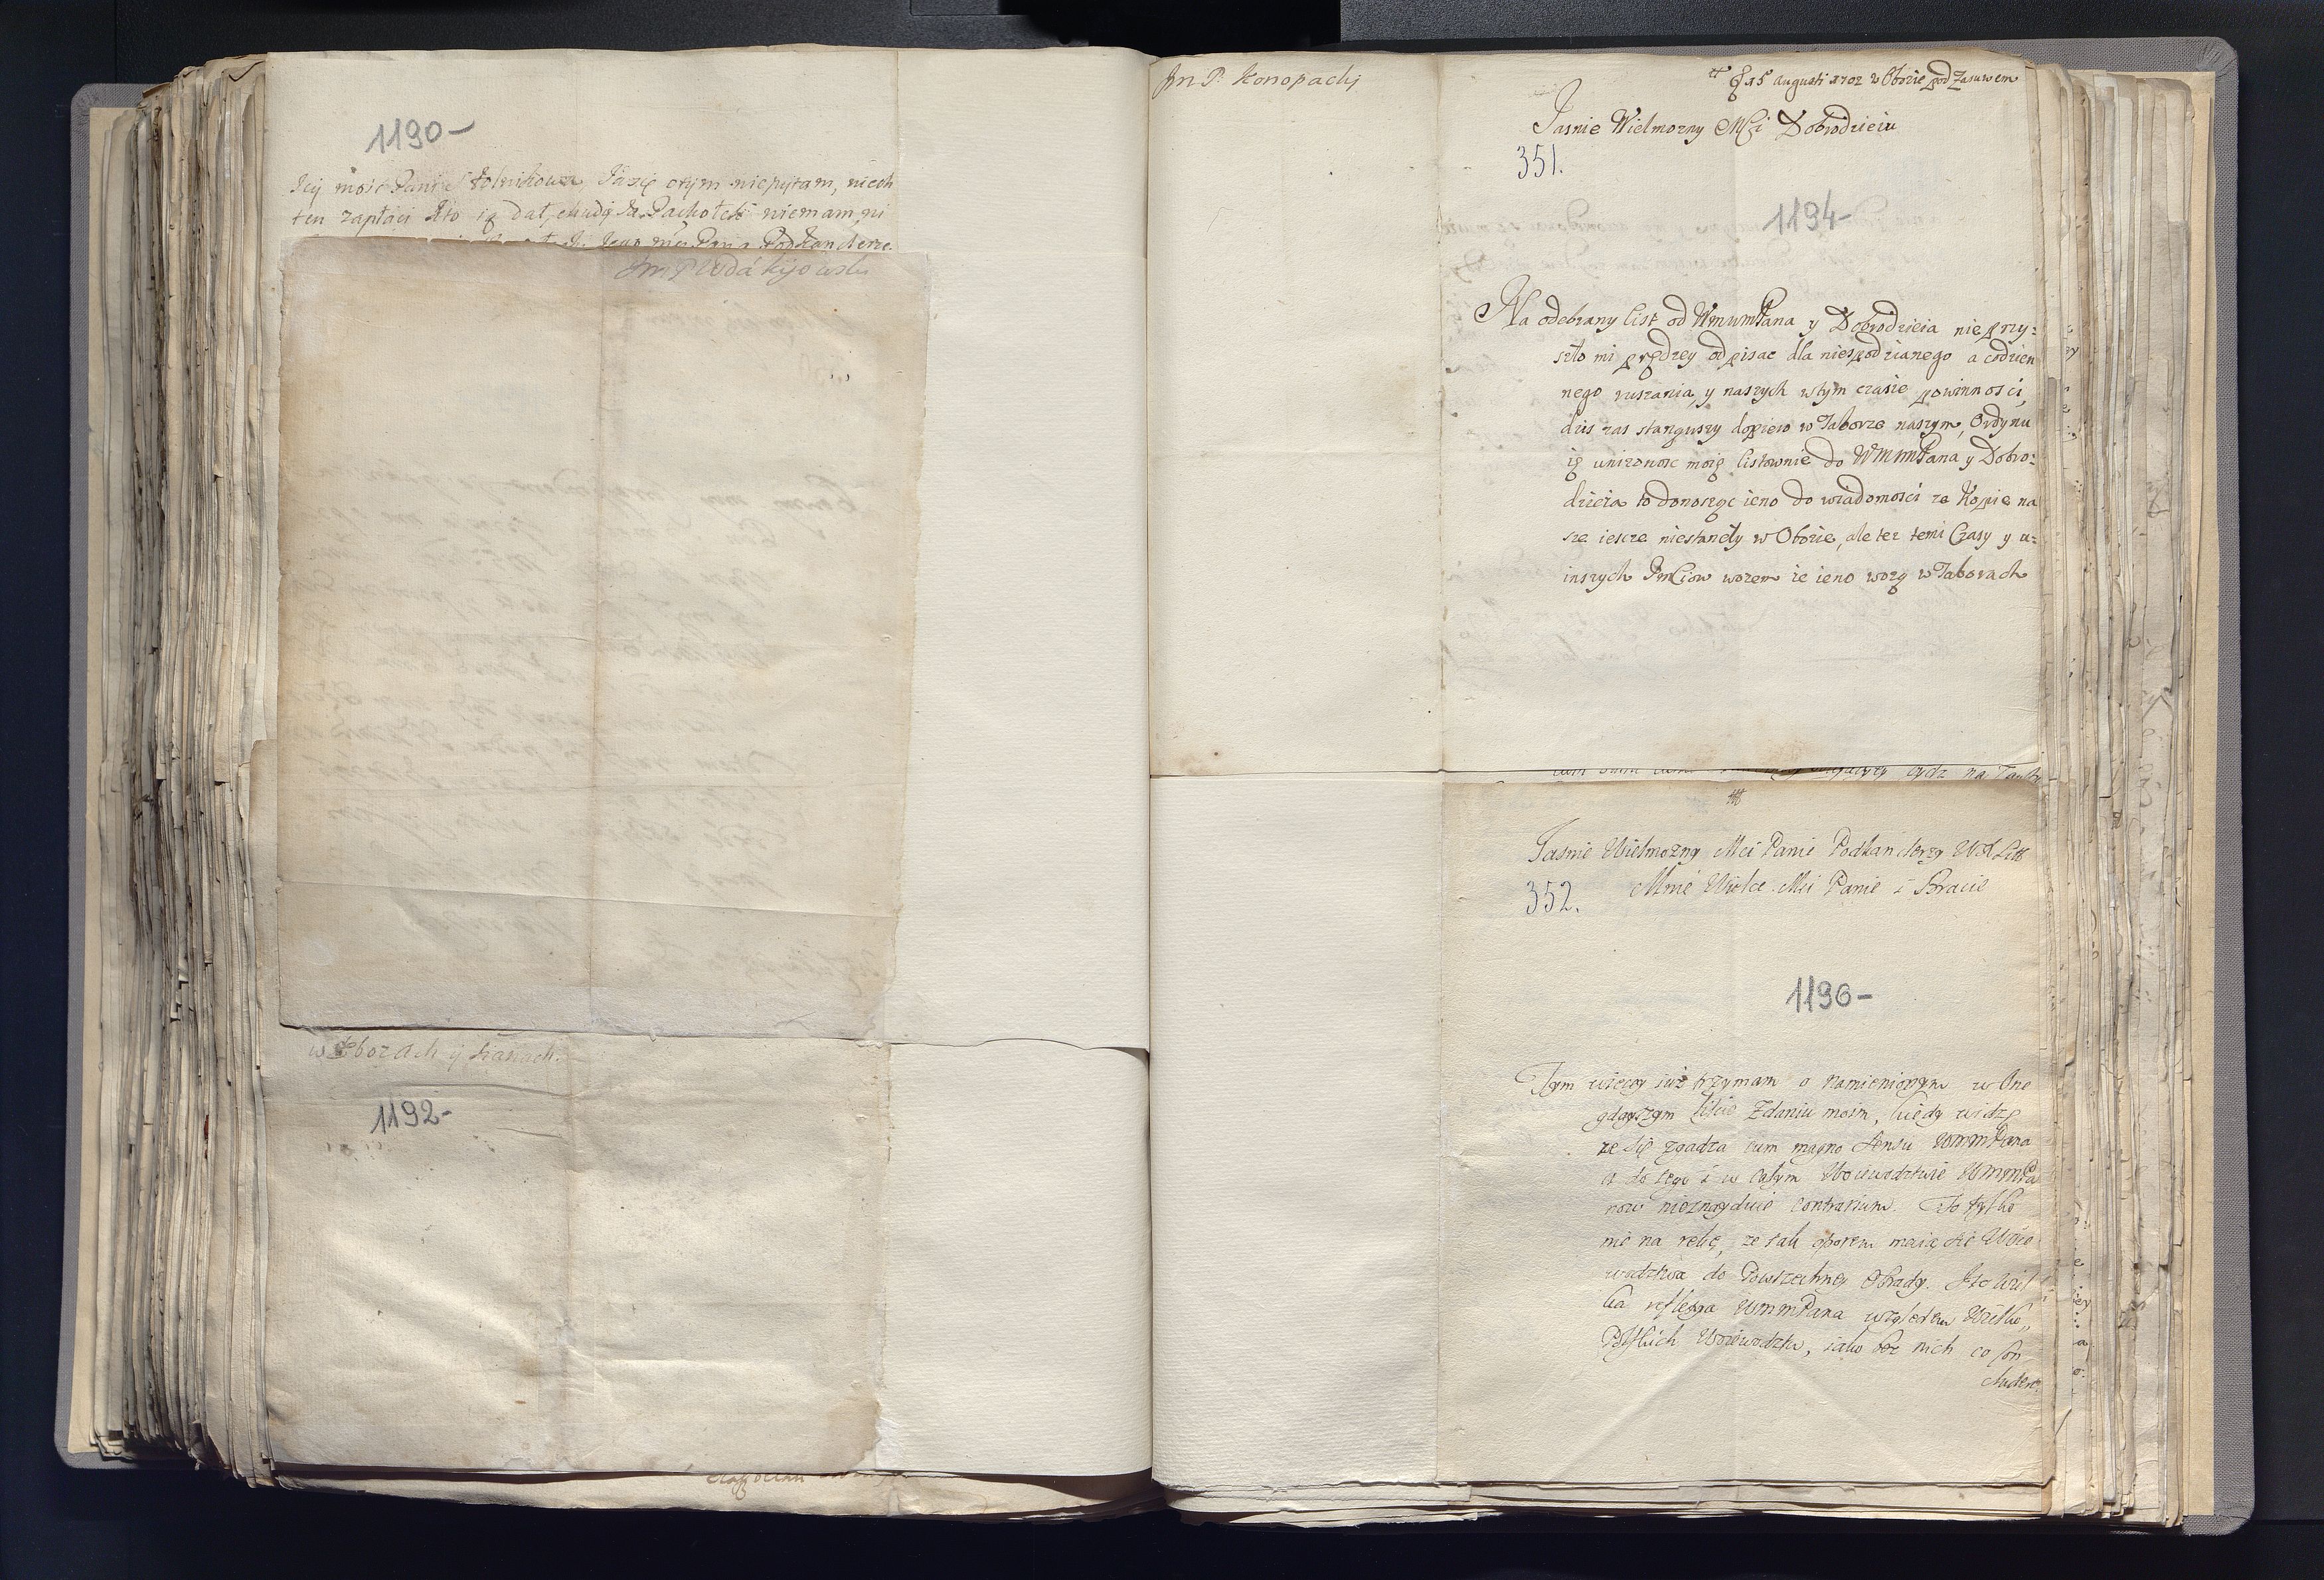 1190-
Jey mość Pani Stolnikowa Ja się otym niepytam, niech
ten zapłaci kto ią dał, chudy Pachołek niemam, ni
Pana Podkanclerze
Jm P Wda kijowski
w Zborach y
1192-
Jm P. Konopacki
d 15 augusti 1702 w Obozie pod
Jasnie Wielmozny Mci Dobrodzieiu
351.
1194-
Na odebrany list od WmumPana y Dobrodzieia nie przy:
szło mi prędzey odpisac dla niespodzianego a codzien
nego ruszania, y naszych wtym czasie powinnosci,
dzis zas stanąwszy dopiero w Taborze naszym, Ordynu
ię unizonosc moię listownie do WMmPana y Dobro:
dzieia to donosząc ieno do wiadomosci ze Kopie na
sze iescze niestanęły w Obozie, ale tez temi Czasy y u:
inszych JmCiow wozem ie ieno wozą w Taborach
Jasnie Wielmozny Mci Panie Podkanclerzy W X Litt
352. Mnie Wielce Mci Panie i Bracie
1196-
Tym więcey iuż trzymam o namienionym w One
gdayszym liście Zdaniu moim, kiedy widzę
ze się zgadza cum magno sensu WmmPana
a do tego i w całym Woiewodztwie WmmPa
now nieznayduie contrarium. To tylko
nie na rękę, ze tak sporem maią się Woie
wodztwa do Powszechney Obrady.
ka reflexya WmmPana względem Wielko
Polskich Woiewodztw, iako bez nich co con
cludere